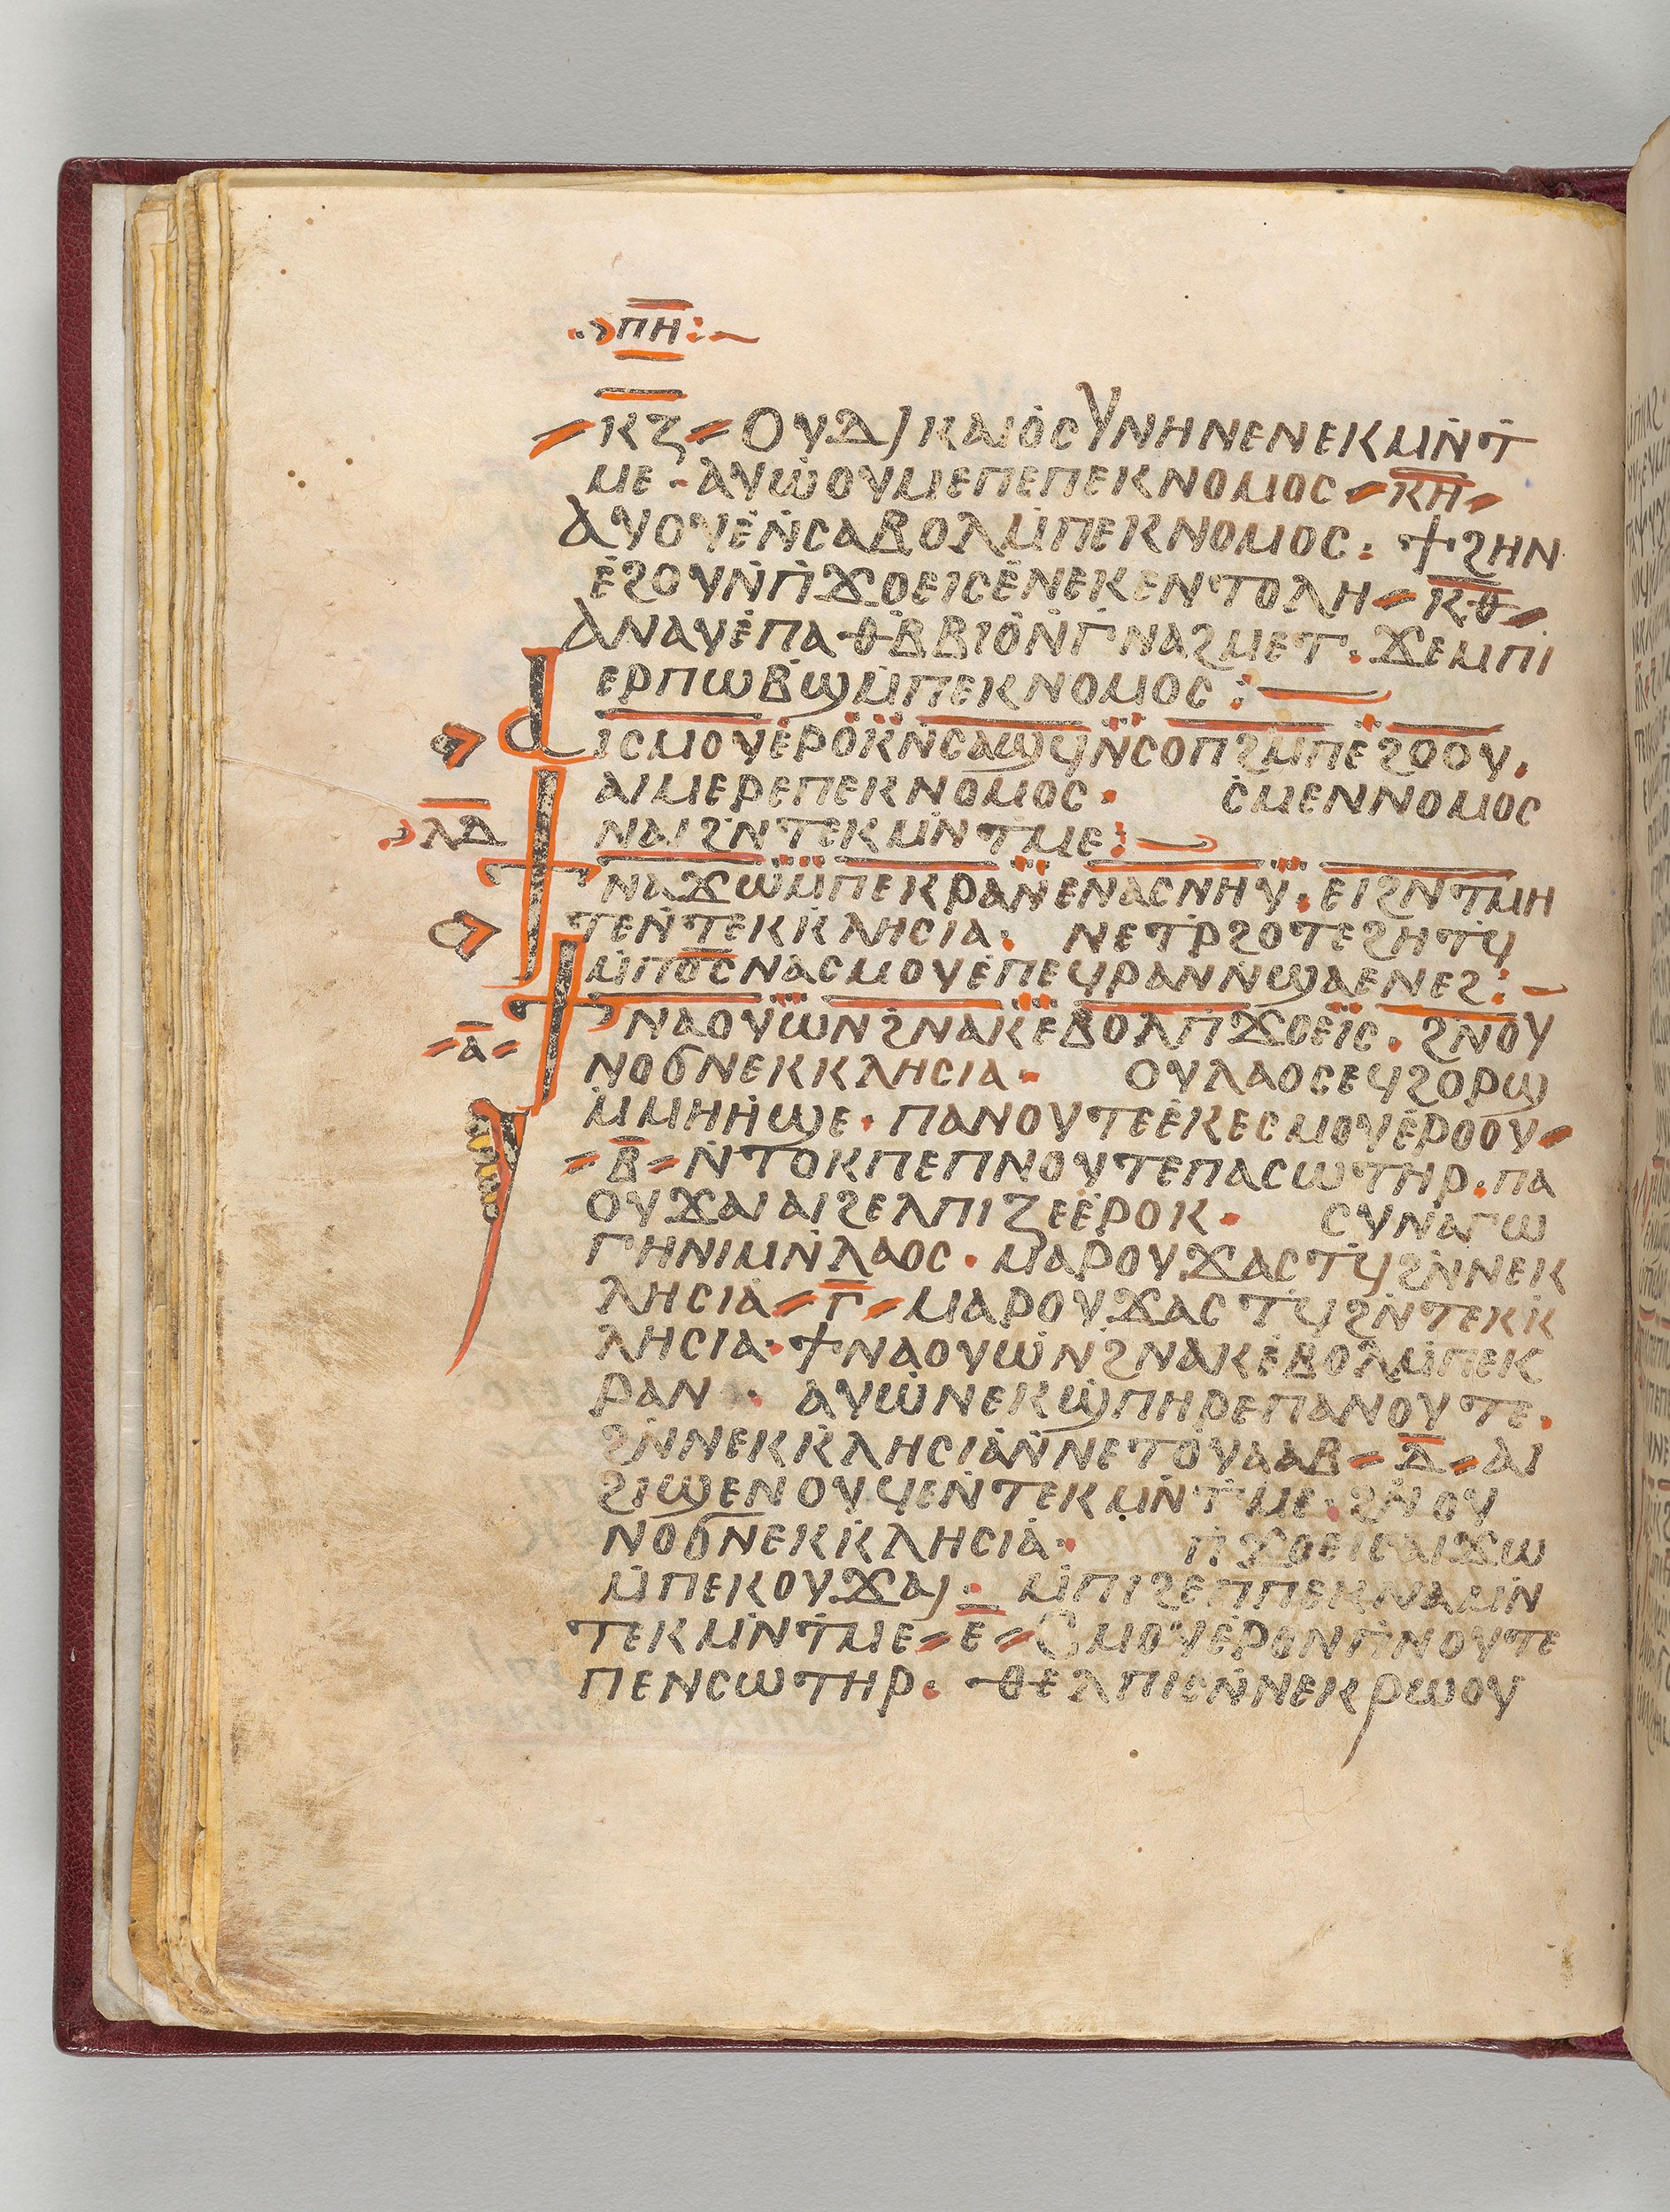 ⲡⲏ
ⲕⲍ ⲟⲩⲇⲓⲕⲁⲓⲟⲥⲩⲛⲏⲛⲉⲛⲉⲕⲙⲛ̇ⲧ̇
ⲙⲉ · ⲁⲩⲱ̇ⲟⲩⲙⲉⲡⲉⲡⲉⲕⲛⲟⲙⲟⲥ ⲕⲏ
ⲁⲩⲟⲩⲉ̇ⲛ̇ⲥⲁⲃⲟⲗⲙ̇ⲡⲉⲕⲛⲟⲙⲟⲥ : ϯϩⲏⲛ
ⲉ̇ϩⲟⲩⲛ̇ⲡ̇ϫⲟⲉⲓⲥⲉ̇ⲛⲉⲕⲉⲛⲧⲟⲗⲏ ⲕⲑ
ⲁⲛⲁⲩⲉ̇ⲡⲁⲑⲃ̇ⲃⲓⲟ̇ⲛ̇ⲅ̇ⲛⲁϩⲙⲉⲧ · ϫⲉⲙⲡⲓ
ⲉⲣⲡⲱⲃϣⲙ̇ⲡⲉⲕⲛⲟⲙⲟⲥ :
ⲁⲓⲥⲙⲟⲩⲉ̇ⲣⲟ̇ⲕⲛ̇ⲥⲁϣϥⲛ̇ⲥⲟⲡϩⲙⲡⲉϩⲟⲟⲩ ·
ⲁⲓⲙⲉⲣⲉⲡⲉⲕⲛⲟⲙⲟⲥ · ⲥ̇ⲙⲉⲛⲛⲟⲙⲟⲥ
ⲗⲇ ⲛⲁⲓϩⲛ̇ⲧⲉⲕⲙⲛ̇ⲧⲙⲉ :
ϯⲛⲁϫⲱⲙ̇ⲡⲉⲕⲣⲁⲛ̇ⲉⲛⲁⲥⲛⲏⲩ · ⲉⲓϩⲛⲧⲙⲏ
ⲧⲉⲛ̇ⲧⲉⲕⲕⲗⲏⲥⲓⲁ · ⲛⲉⲧⲣ̇ϩⲟⲧⲉϩⲏⲧϥ̇
ⲙ̇ⲡⲟ̅ⲥ̅ⲛⲁⲥⲙⲟⲩⲉ̇ⲡⲉϥⲣⲁⲛⲛ̇ϣⲁⲉⲛⲉϩ :
ⲁ ϯⲛⲁⲟⲩⲱⲛϩⲛⲁⲕⲉ̇ⲃⲟⲗⲡ̇ϫⲟⲉⲓ̈ⲥ · ϩⲛⲟⲩ
ⲛⲟϭⲛⲉⲕⲕⲗⲏⲥⲓⲁ · ⲟⲩⲗⲁⲟⲥⲉϥϩⲟⲣϣ
ⲙ̇ⲙⲏⲏ̇ϣⲉ · ⲡⲁⲛⲟⲩⲧⲉⲉ̇ⲕⲉⲥⲙⲟⲩⲉ̇ⲣⲟⲟⲩ
ⲃ ⲛ̇ⲧⲟⲕⲡⲉⲡⲛⲟⲩⲧⲉⲡⲁⲥⲱⲧⲏⲣ · ⲡⲁ
ⲟⲩϫⲁⲓⲁⲓϩⲉⲗⲡⲓⲍⲉⲉ̇ⲣⲟⲕ · ⲥⲩⲛⲁⲅⲱ
ⲅⲏⲛⲓⲙⲛ̇ⲗⲁⲟⲥ · ⲙⲁⲣⲟⲩϫⲁⲥⲧϥ̇ϩⲛ̇ⲛⲉⲕ
ⲗⲏⲥⲓⲁ̇ ⲅ ⲙⲁⲣⲟⲩϫⲁⲥⲧϥ̇ϩⲛ̇ⲧⲉⲕⲕ
ⲗⲏⲥⲓⲁ · ϯⲛⲁⲟⲩⲱ̇ⲛϩ̇ⲛⲁⲕⲉ̇ⲃⲟⲗⲙ̇ⲡⲉⲕ
ⲣⲁⲛ · ⲁⲩⲱ̇ⲛⲉⲕϣ̇ⲡⲏⲣⲉⲡⲁⲛⲟⲩⲧⲉ ·
ϩⲛ̇ⲛⲉⲕⲕⲗⲏⲥⲓⲁ̇ⲛ̇ⲛⲉⲧⲟ̇ⲩⲁⲁⲃ ⲇ ⲁⲓ
ϩⲓϣⲉⲛⲟⲩϥⲉⲛ̇ⲧⲉⲕⲙⲛ̇ⲧⲙⲉ · ϩⲛ̇ⲟⲩ
ⲛⲟϭⲛⲉⲕⲕⲗⲏⲥⲓⲁ̇ · ⲡ̇ϫⲟⲉⲓⲥⲁⲓϫⲱ
ⲙ̇ⲡⲉⲕⲟⲩϫⲁⲓ : ⲙ̇ⲡⲓϩⲉⲡⲡⲉⲕⲛⲁⲙⲛ̇
ⲧⲉⲕⲙⲛ̇ⲧ̇ⲙⲉ ⲉ ⲥⲙⲟⲩⲉ̇ⲣⲟⲛⲡ̇ⲛⲟⲩⲧⲉ
ⲡⲉⲛⲥⲱⲧⲏⲣ · ⲑⲉⲗⲡⲓⲥⲛ̇ⲛⲉⲕⲣⲱⲟⲩ